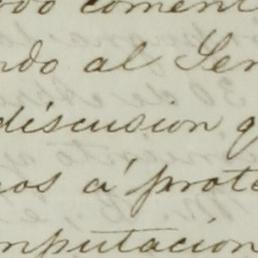 ovo coment
ndo al Ser
discusion q
nos á prote
mputacion